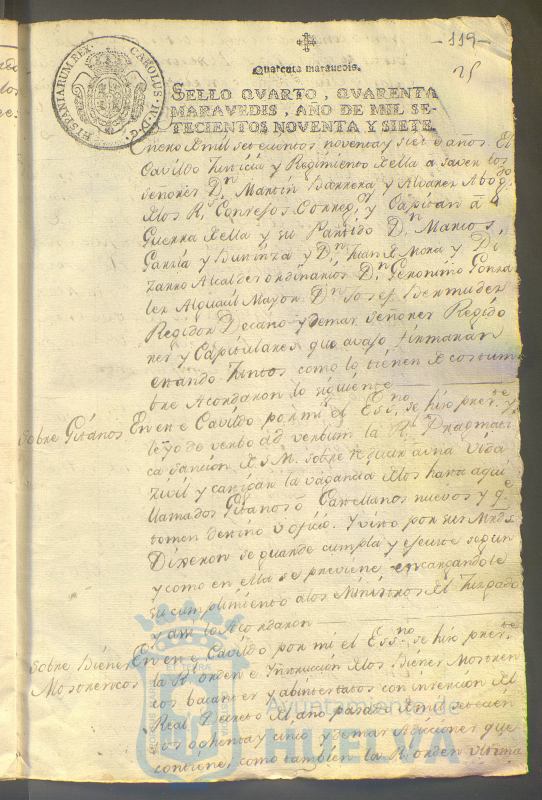 -119-
25
Quarenta maravedis.
SELLO QVARTO, QVARENTA
MARAVEDIS, AÑO DE MIL SE-
TECIENTOS NOVENTA Y SIETE.
HISPANIARUM REX CAROLUS IV D G
Enero de mil setecientos noventa y siete años. El
Cavildo Justicia y Regimiento de ella a saver los
Señores Dn. Martin Barrera y Alvarez Abogdo.
de los Rs. Consejos Corregor. y Capitan a
Guerra de ella y su Partido Dn. Marcos
Garzia y Dn. Juan de Mora y Pi
zarro Alcaldes ordinarios Dn. Geronimo Gonza
lez Alguacil Mayor Dn. Josef Bermudez
Regidor Decano y demas Señores Regido
res y Capitulares que avajo firmaran
estando Juntos como lo tienen de costum
bre Acordaron lo siguiente
Sobre Gitanos
En este Cavildo por mi el Essno. se hizo preste. y
leyo de verbo ad verbum la Rl. Pragmati
ca sancion de S.M. sobre reducir a una vida
zivil y la vagancia de los hasta aqui
llamados Gitanos o Castellanos nuevos y qe.
tomen destino u oficio. Y visto por sus Mrds.
Dixeron se guarde cumpla y execute segun
y como en ella se previene encargandole
su cumplimiento a los Ministros del Juzgado
y asi lo Acordaron
Sobre Bienes
Mostrencos
En este Cavildo por mi el Essno. se hizo preste.
la Rl. orden e Ynstruccion de los Bienes Mostren
cos bacantes y abintestatos con insercion del
Real Decreto del año pasado de mil setecien
tos ochenta y cinco y demas Adicciones que
contiene, como tambien la Rl. orden ultima
Ayuntamiento de
HUELVA